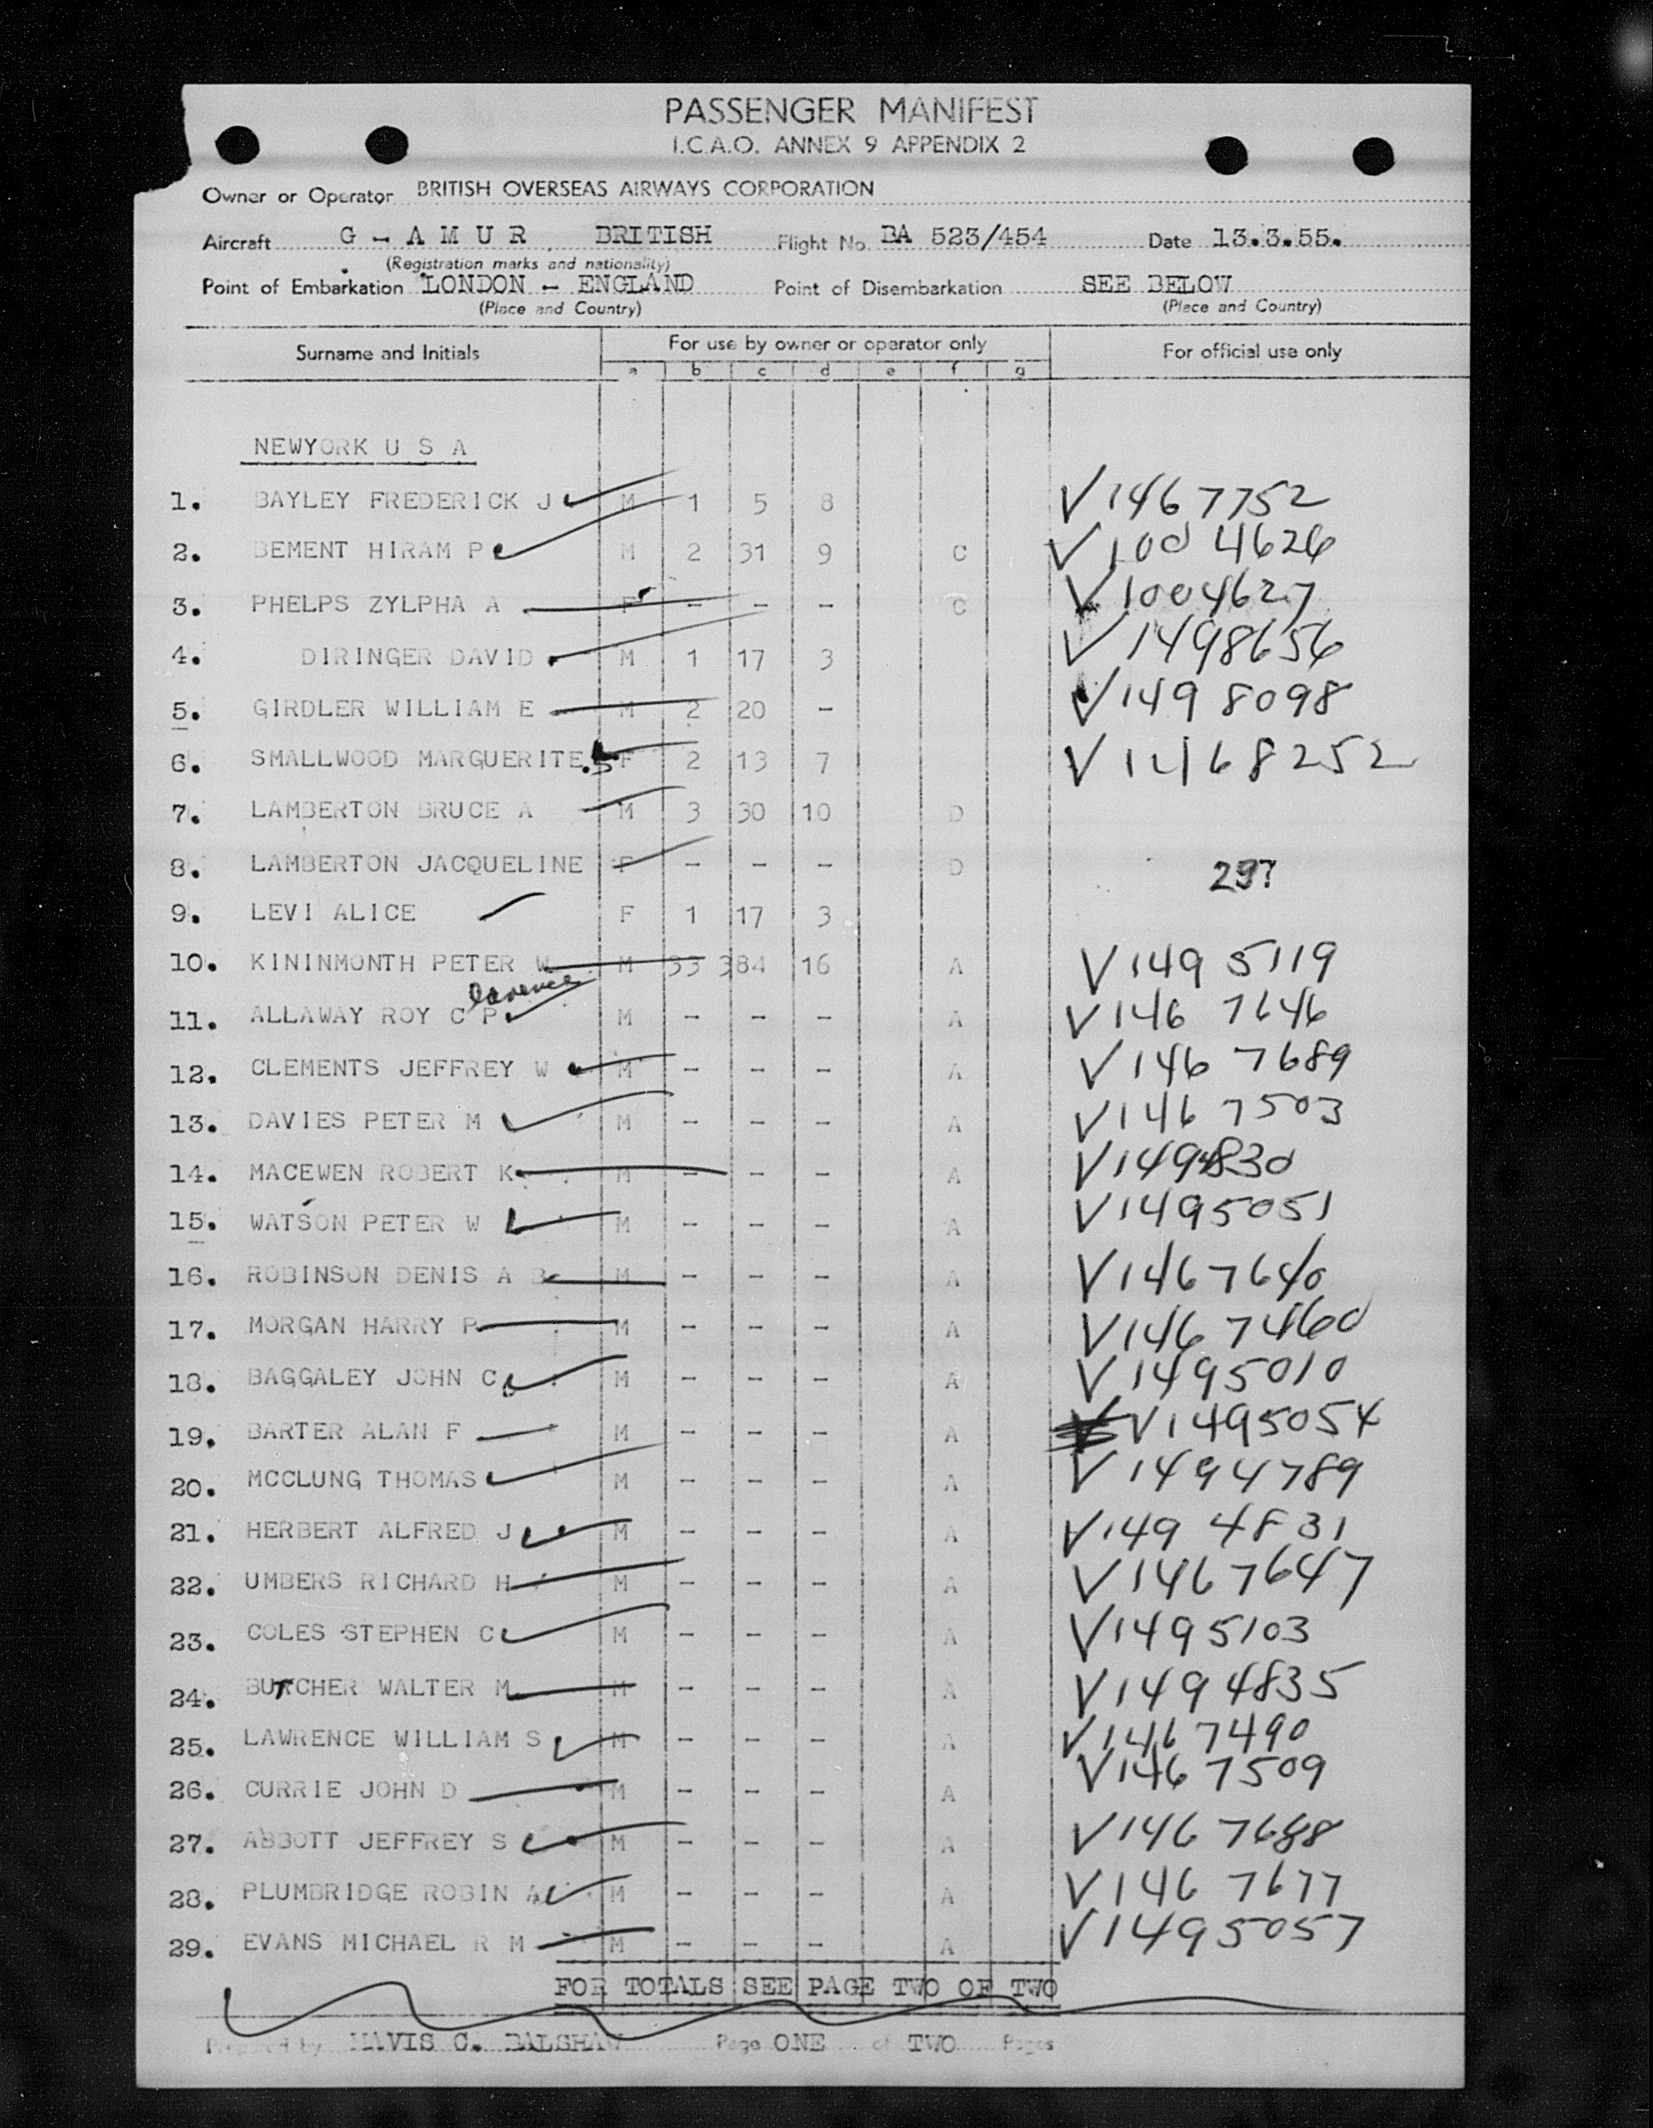 PASSENGER MANIFEST
I.C.A.O. ANNEX 9 APPENDIX 2
Owner or Operator BRITISH OVERSEAS AIRWAYS CORPORATION
Aircraft G - A M U R . BRITISH Flight No. BA 523/454 Date 13.3.55.
(Registration marks and nationality)
Point of Embarkation LONDON - ENGLAND Point of Disembarkation SEE BELOW
(Place and Country) (Place and Country)
Surname and Initials For use by owner or operator only For official use only
a b c d e f g
NEWYORK U S A
1. BAYLEY FREDERICK J M 1 5 8 V1467752
2. BEMENT HIRAM P M 2 31 9 C V1004626
3. PHELPS ZYLPHA A F - - - C V1004627
4. DIRINGER DAVID M 1 17 3 V1498656
5. GIRDLER WILLIAM E M 2 20 - V149 8098
6. SMALLWOOD MARGUERITE.S F 2 13 7 V1468252
7. LAMBERTON BRUCE A M 3 30 10 D
8. LAMBERTON JACQUELINE F - - - D 297
9. LEVI ALICE F 1 17 3
10. KININMONTH PETER W M 33 384 16 A V149 5119
larence
11. ALLAWAY ROY C P M - - - A V146 7646
12. CLEMENTS JEFFREY W M - - - A V146 7689
13. DAVIES PETER M M - - - A V146 7503
14. MACEWEN ROBERT K M - - - A V1494830
15. WATSON PETER W M - - - A V1495051
16. ROBINSON DENIS A B M - - - A V1467640
17. MORGAN HARRY P M - - - A V146 7460
18. BAGGALEY JOHN C M - - - A V1495010
19. BARTER ALAN F M - - - A V1495054
20. MCCLUNG THOMAS M - - - A V1494789
21. HERBERT ALFRED J M - - - A V149 4831
22. UMBERS RICHARD H M - - - A V1467647
23. COLES STEPHEN C M - - - A V1495103
24. BUTCHER WALTER M M - - - A V149 4835
25. LAWRENCE WILLIAM S M - - - A V146 7490
26. CURRIE JOHN D M - - - A V146 7509
27. ABBOTT JEFFREY S M - - - A V146 7688
28. PLUMBRIDGE ROBIN A M - - - A V146 7677
29. EVANS MICHAEL R M M - - - A V1495057
FOR TOTALS SEE PAGE TWO OF TWO
Prepared by MAVIS C. BALSHAW Page ONE of TWO Pages